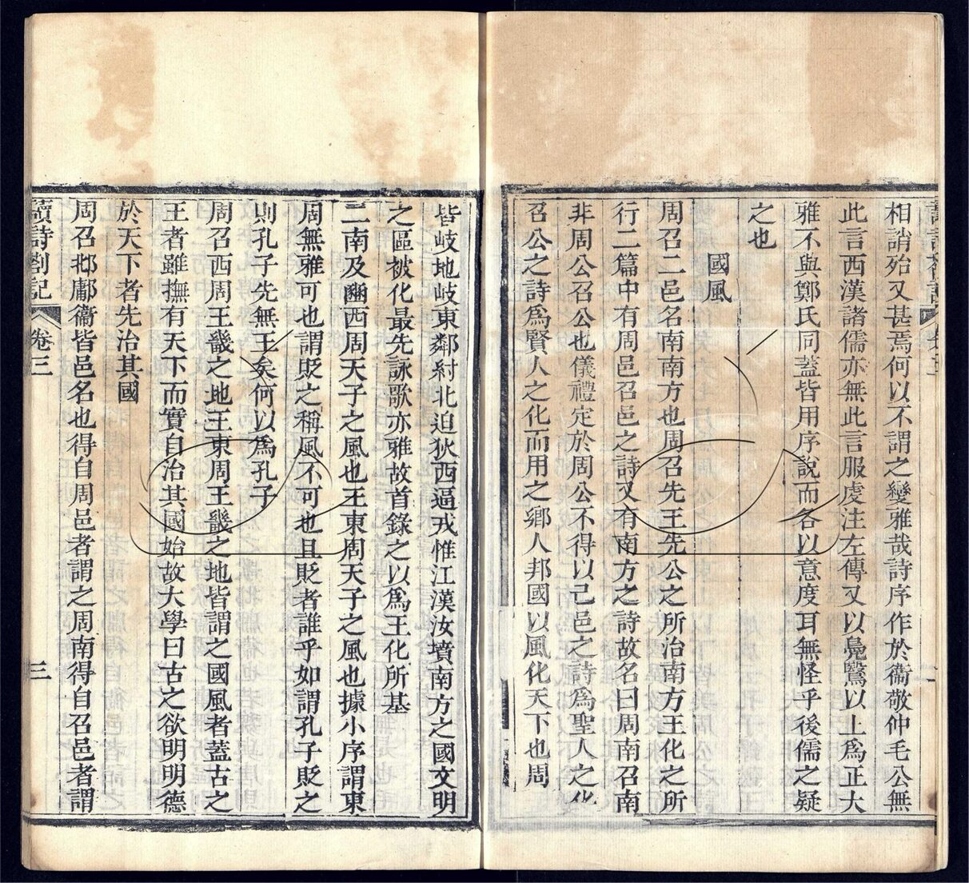 相誚殆又甚焉何以不謂之變雅哉詩序作於衞敬仲毛公無
此言西漢諸儒亦無此言服虔注左傳又以鳧鷖以上爲正大
雅不與鄭氏同蓋皆用序說而各以意度耳無怪乎後儒之疑
之也
國風
周召二邑名南南方也周召先王先公之所治南方王化之所
行二篇中有周邑召邑之詩又有南方之詩故名曰周南召南
非周公召公也儀禮定於周公不得以己邑之詩爲聖人之化
召公之詩爲賢人之化而用之鄉人邦國以風化天下也周
皆岐地岐東鄰紂北迫狄西逼戎惟江漢汝墳南方之國文明
之區被化最先詠歌亦雅故首錄之以爲王化所基
二南及豳西周天子之風也王東周天子之風也據小序謂東
周無雅可也謂貶之稱風不可也且貶者誰乎如謂孔子貶之
則孔子先無王矣何以爲孔子
周召西周王畿之地王東周王畿之地皆謂之國風者蓋古之
王者雖撫有天下而實自治其國始故大學曰古之欲明明德
於天下者先治其國
周召邶鄘衞皆邑名也得自周邑者謂之周南得自召邑者謂
讀詩劄記
卷三
三